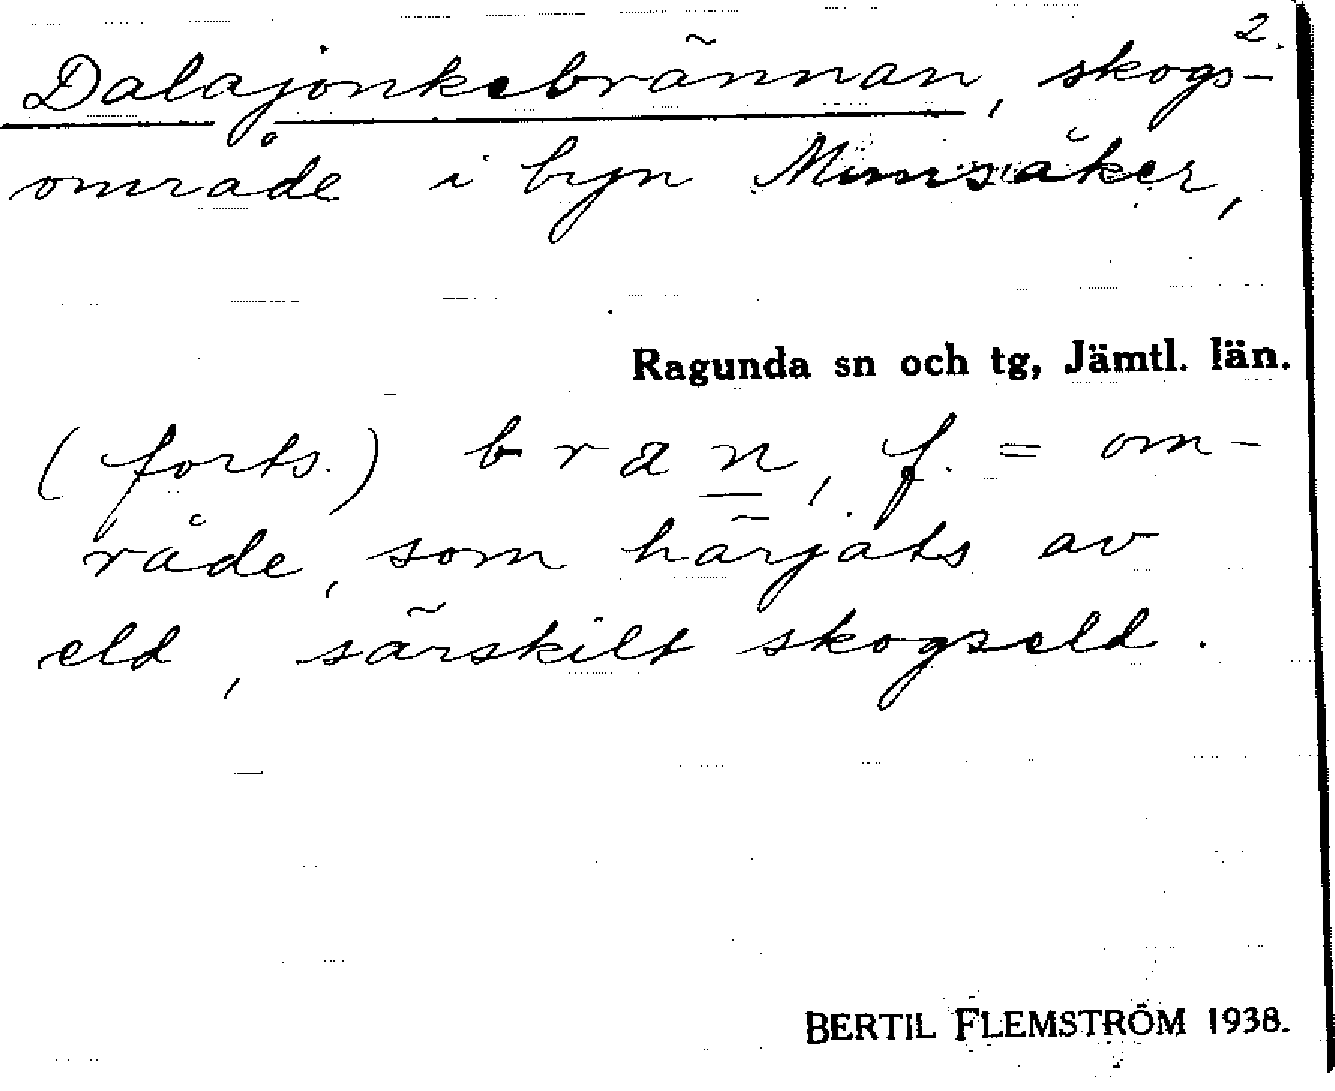 2.
Dalajonkebrännan, skogs-
område i byn Munsåker,
Ragunda sn och tg, Jämtl. län.
(forts.) bran, f. = om-
råde, som härjats av
eld, särskilt skogseld.
BERTIL FLEMSTRÖM 1938.